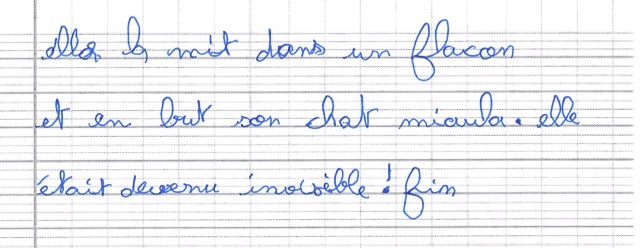 elle la mit dans un flacon
et en but son chat miaula. elle
était devenu invisible! fin